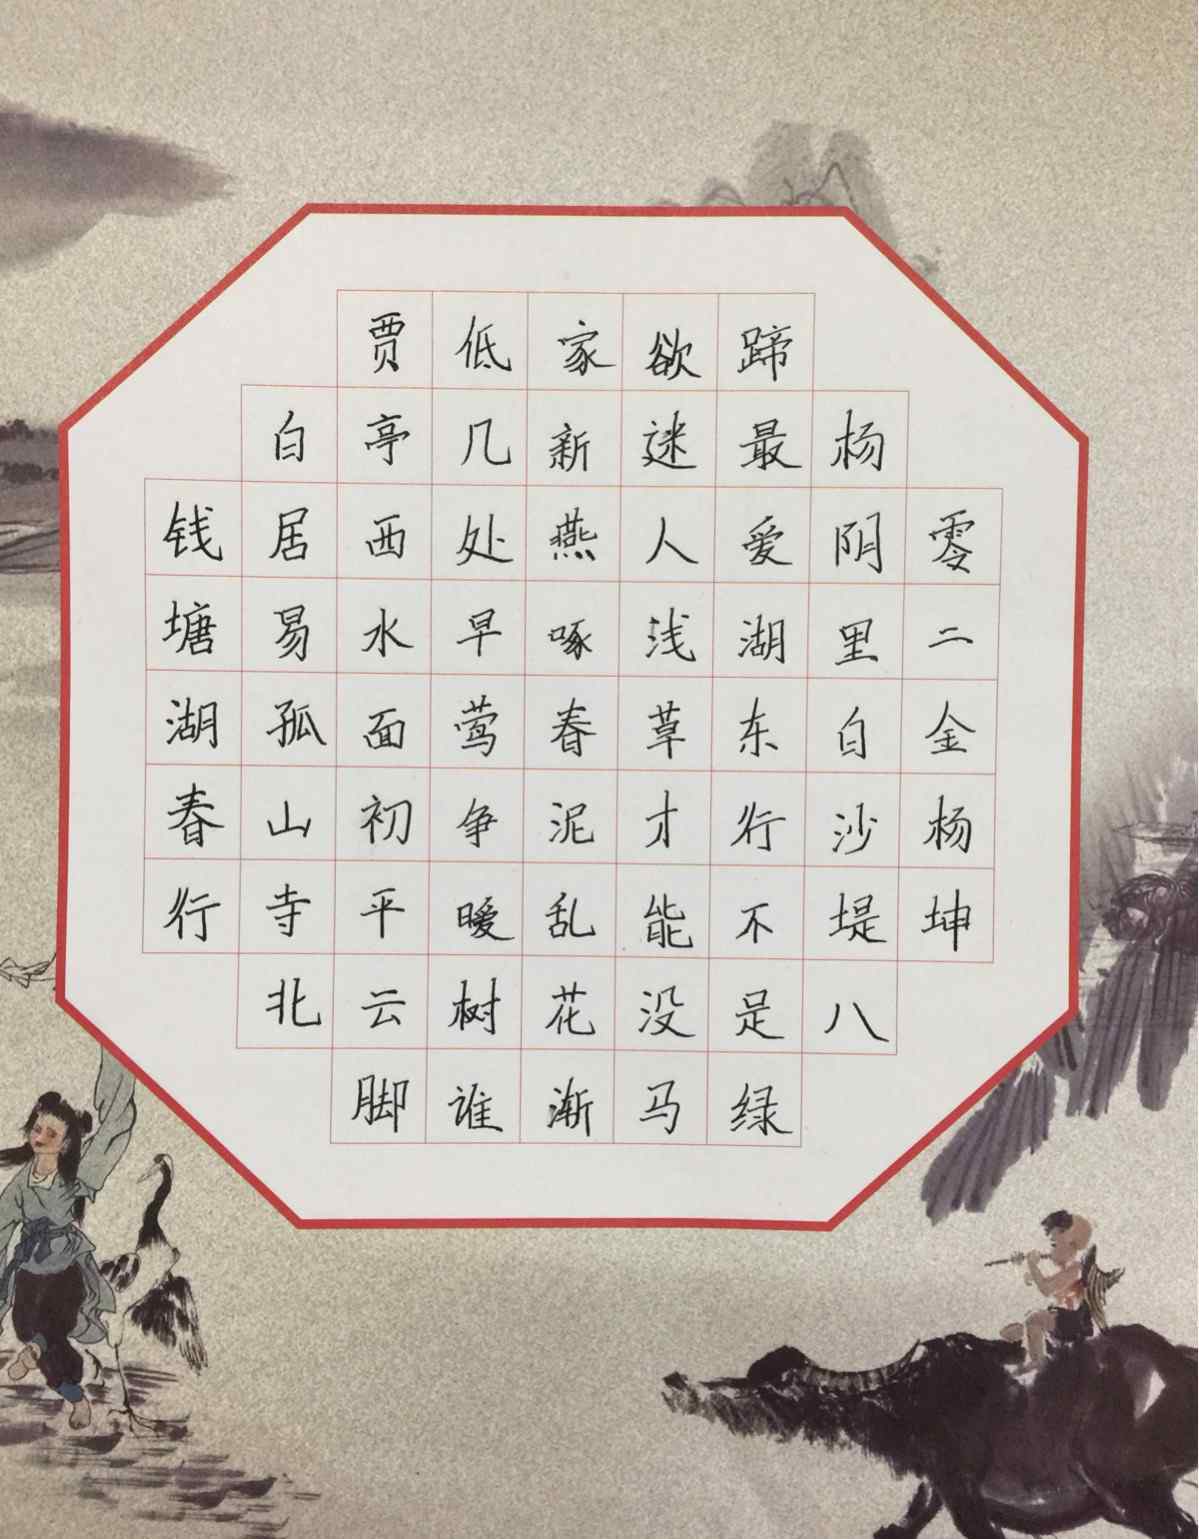 钱塘湖春行
白居易孤山寺北
贾亭西水面初平云脚
低几处早莺争暧树谁
家新燕啄春泥乱花渐
欲迷人浅草才能没马
蹄最爱湖东行不足绿
杨阴里白沙堤八
零二金杨坤